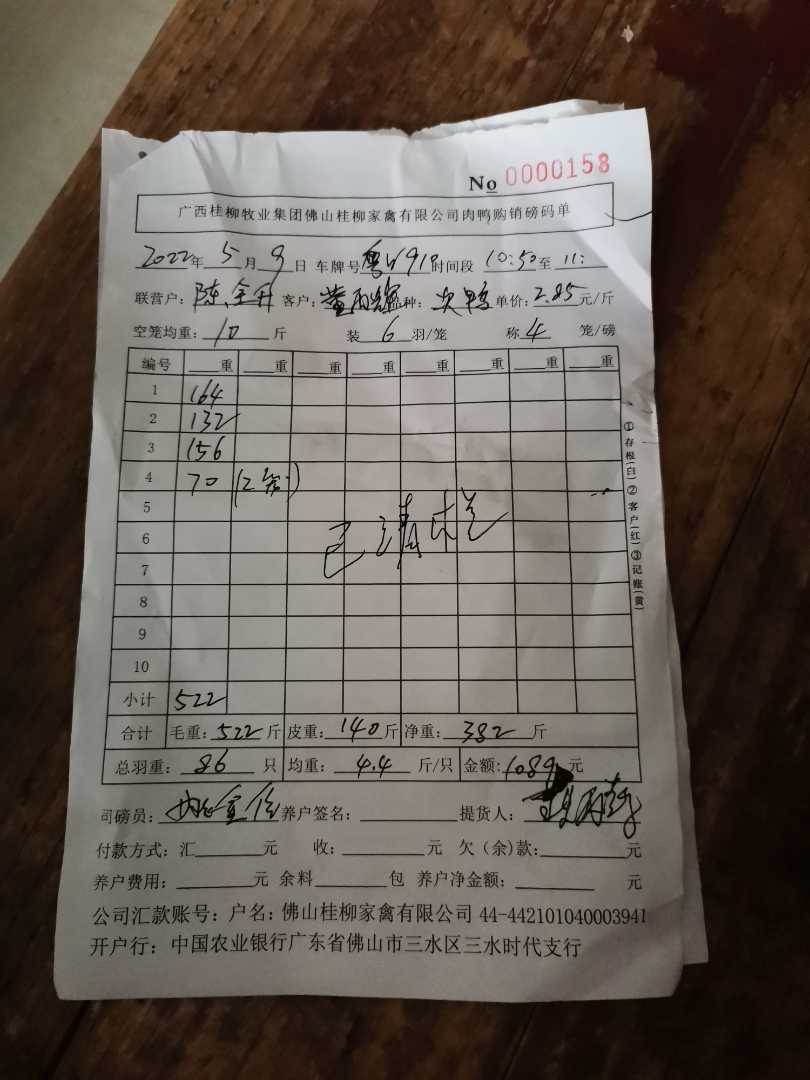 No 0000158
广西桂柳牧业集团佛山桂柳家禽有限公司肉鸭购销磅码单
2022年 5月 9日 车牌号 粤 910 时间段 10:50至 11:
联营户: 陈 客户: 品种: 次鸭 单价: 2.85元/斤
空笼均重: 10 斤 装 6 羽/笼 称 4 笼/磅
编号 重 重 重 重 重 重 重 重
1 164
2 132
3 156
4 70 (2笼)
5
6 已清
7
8
9
10
小计 522
合计 毛重: 522 斤 皮重: 140 斤 净重: 382 斤
总羽重: 86 只 均重: 4.4 斤/只 金额: 1089 元
司磅员: 养户签名: 提货人:
付款方式: 汇 元 收: 元 欠(余)款: 元
养户费用: 元 余料 包 养户净金额: 元
公司汇款账号: 户名: 佛山桂柳家禽有限公司 44-442101040003941
开户行: 中国农业银行广东省佛山市三水区三水时代支行
①存根(白)②客户(红)③记账(黄)